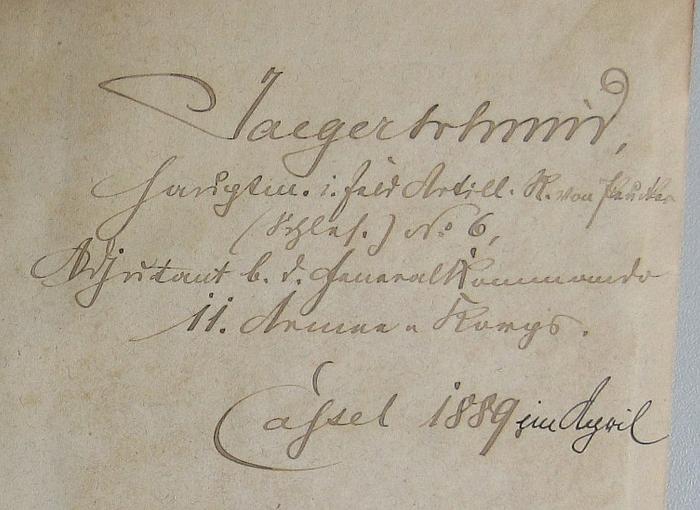 Jaegerschmid,
Hauptm. i. Feld Artill. R. von Peucker
(Schles.) No 6,
Adjutant b. d. General Kommando
11. Armee-Korps.
Cassel 1889 im April